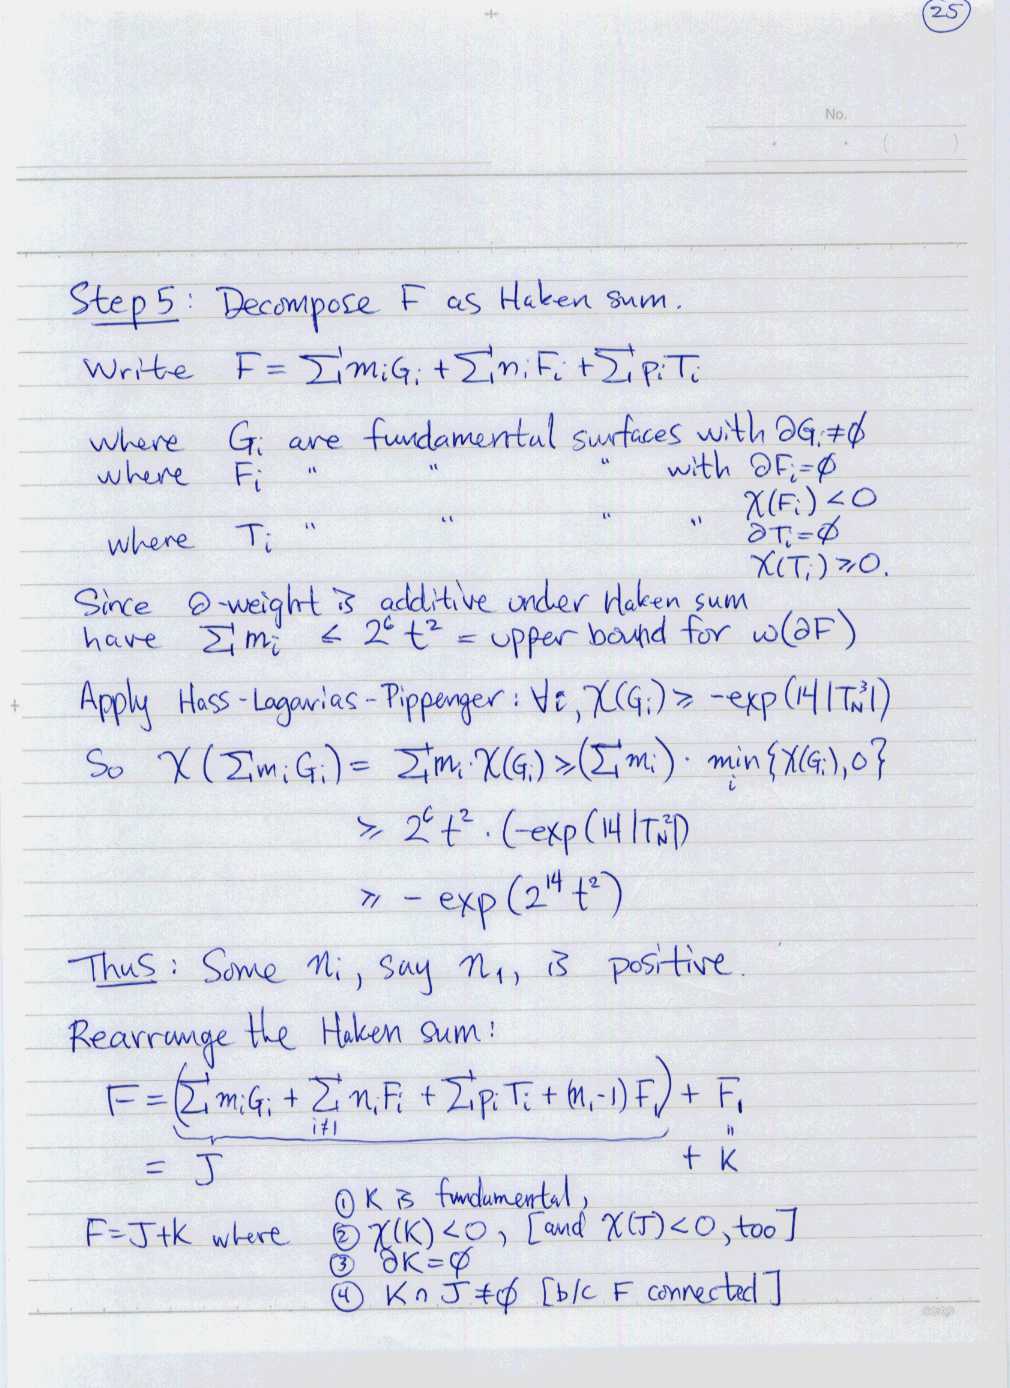 25
No.
( )
Step 5: Decompose F as Haken sum.
Write F = ∑ mᵢGᵢ + ∑ nᵢFᵢ + ∑ pᵢTᵢ
where Gᵢ are fundamental surfaces with ∂Gᵢ≠∅
where Fᵢ " " " with ∂Fᵢ=∅
χ(Fᵢ) <0
where Tᵢ " " " " ∂Tᵢ=∅
χ(Tᵢ)≥0.
Since ∂-weight is additive under Haken sum
have ∑ mᵢ ≤ 2⁶ t² = upper bound for w(∂F)
Apply Hass-Lagarias-Pippenger: ∀i, χ(Gᵢ) ≥ -exp(14|T_N³|)
So χ(∑mᵢGᵢ) = ∑mᵢ·χ(Gᵢ) ≥ (∑mᵢ)· min_i {χ(Gᵢ),0}
≥ 2⁶t²·(-exp(14|T_N³|)
≥ - exp(2¹⁴ t²)
Thus: Some nᵢ, say n₁, is positive.
Rearrange the Haken sum:
F = (∑mᵢGᵢ + ∑_{i≠1} nᵢFᵢ + ∑pᵢTᵢ + (n₁-1)F₁) + F₁
"
= J + K
① K is fundamental,
F=J+K where ② χ(K)<0, [and χ(J)<0, too]
③ ∂K=∅
④ K∩J≠∅ [b/c F connected]